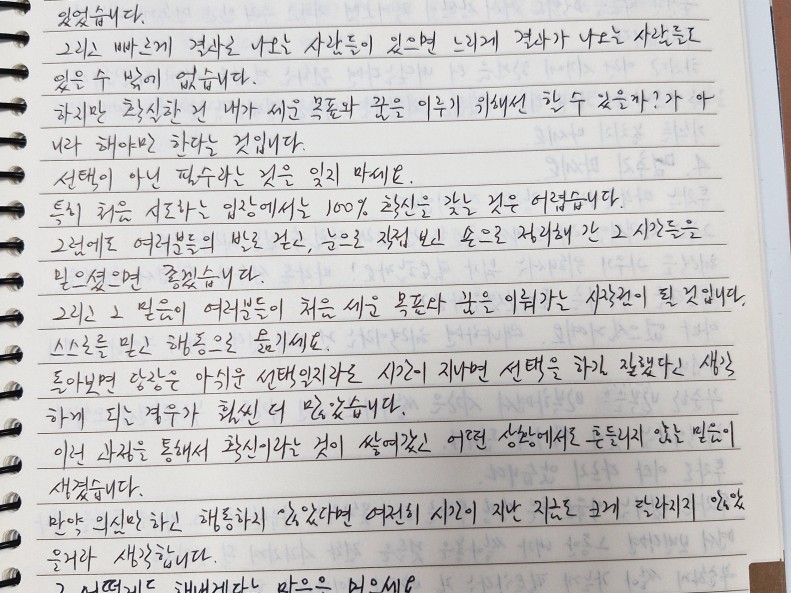 있었습니다.
그리고 빠르게 결과로 나오는 사람들이 있으면 느리게 결과가 나오는 사람들도
있을 수 밖에 없습니다.
하지만 확실한 건 내가 세운 목표와 꿈을 이루기 위해선 할 수 있을까?가 아
니라 해야만 한다는 것입니다.
선택이 아닌 필수라는 것을 잊지 마세요.
특히 처음 시도하는 입장에서는 100% 확신을 갖는 것은 어렵습니다.
그럼에도 여러분들의 발로 걷고, 눈으로 직접 보고 손으로 정리해 간 그 시간들을
믿으셨으면 좋겠습니다.
그리고 그 믿음이 여러분들이 처음 세운 목표와 꿈을 이뤄가는 시작점이 될 것입니다.
스스로를 믿고 행동으로 옮기세요.
돌아보면 당장은 아쉬운 선택일지라도 시간이 지나면 선택을 하길 잘했다고 생각
하게 되는 경우가 훨씬 더 많았습니다.
이런 과정을 통해서 확신이라는 것이 쌓여갔고 어떤 상황에서도 흔들리지 않는 믿음이
생겼습니다.
만약 의심만 하고 행동하지 않았다면 여전히 시간이 지난 지금도 크게 달라지지 않았
을거라 생각합니다.
그 어떻게든 해내겠다는 마음을 먹으세요